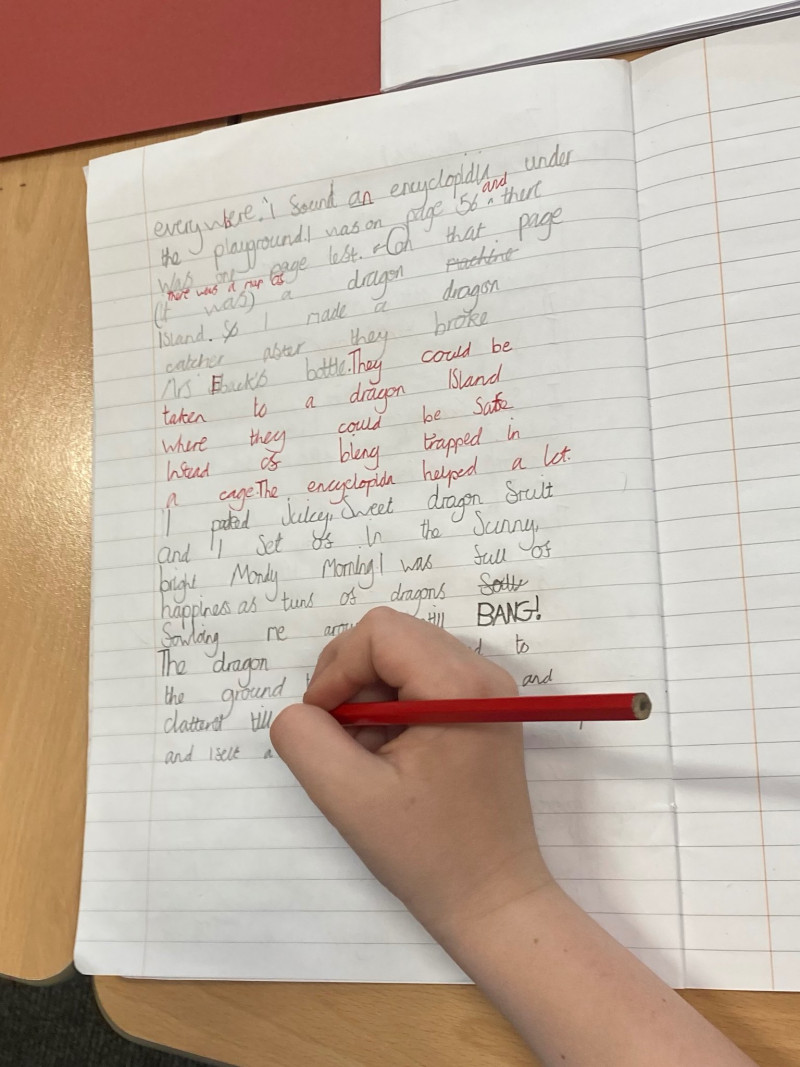 everywhere. I sound an encyclopidia under
the playground. I was on page 56 and there
was one page left. On that page
there was a map as
(it was) a dragon machine
Island. So I made a dragon
catcher aster they broke
Mrs bottle. They could be
taken to a dragon Island
where they could be safe
Instead of bieng trapped in
a cage. The encyclopida helped a lot.
I packed juicey, sweet dragon sruit
and I set os in the sunny,
bright Mondy Morning. I was sull os
happiness as tuns of dragons
Sowlding me till BANG!
The dragon to
the ground and
clatterd till
and I selt a